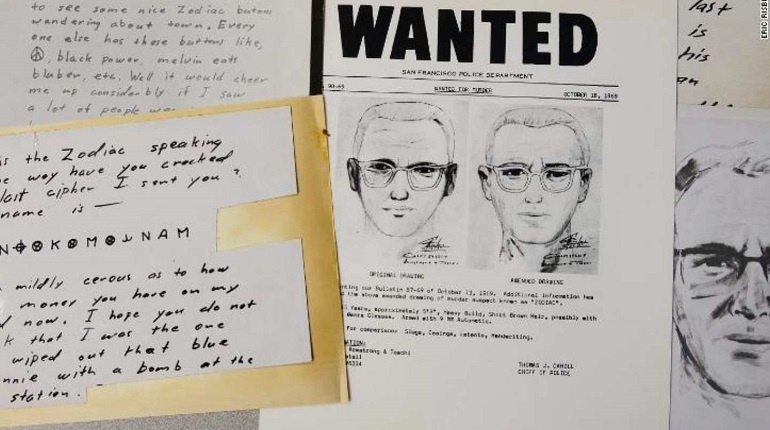 to see some nice Zodiac butons
wandering about town. Every
one else has these buttons like,
black power, melvin eats
bluber, etc. Well it would cheer
me up considerbly if I saw
a lot of people
is the Zodiac speaking
way have you cracked
last cipher I sent you?
name is —
NAM
mildly cerous as to how
money you have on my
now. I hope you do not
that I was the one
wiped out that blue
with a bomb at the
station.
WANTED
SAN FRANCISCO POLICE DEPARTMENT
WANTED FOR MURDER
OCTOBER 18, 1969
ORIGINAL DRAWING
AMENDED DRAWING
our Bulletin 87-69 of October 13, 1969. Additional information has
the above amended drawing of murder suspect known as "ZODIAC".
Years, approximately 5'8", Heavy Build, Short Brown Hair, possibly with
Wears Glasses. Armed with 9 MM Automatic.
for comparison: Slugs, Casings, Latents, Handwriting.
Armstrong & Toschi
THOMAS J. CAHILL
CHIEF OF POLICE
last
is
his
an
ERIC RISB